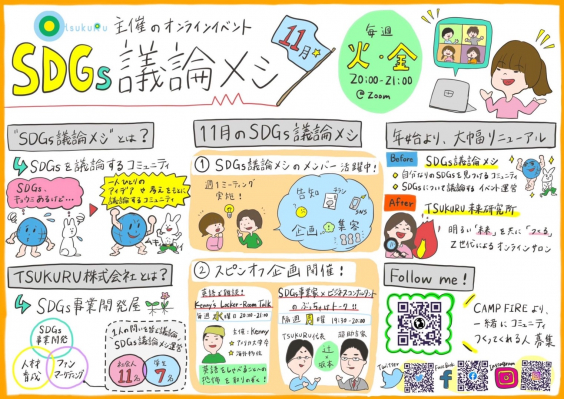 tsukuru 主催のオンラインイベント
SDGs 議論メシ
11月
毎週
火・金
20:00-21:00
@zoom
"SDGs議論メシ"とは?
SDGsを議論するコミュニティ
SDGs、
一人ひとりの
アイデアや考えをもとに
議論するコミュニティ
11月のSDGs議論メシ
① SDGs議論メシのメンバー活躍中!
週1ミーティング
実施!
告知
チラシ
SNS
企画
集客
年始より、大幅リニューアル
Before
SDGs議論メシ
・自分なりのSDGsを見つけるコミュニティ
・SDGsについて議論するイベント運営
After
TSUKURU未来研究所
明るい"未来"を共に"つくる"
Z世代によるオンラインサロン
TSUKURU株式会社とは?
SDGs事業開発屋
SDGs
事業開発
人材
育成
ファン
マーケティング
1人の問いを皆で議論
SDGs議論メシ運営
社会人
11名
学生
7名
② スピンオフ企画開催!
英語で雑談!
Kenny's Locker-Room Talk
毎週水曜日 20:00-21:00
主催:Kenny
英語をしゃべることへの
恐怖を取りのぞく!
SDGs事業家×ビジネスコンサルタント
のぶっちゃけトーク!!
隔週月曜日 19:30-20:00
TSUKURU代表
辻×坂本
Follow me!
CAMPFIREより、
一緒にコミュニティ
つくってくれる人募集
Twitter
Facebook
Instagram